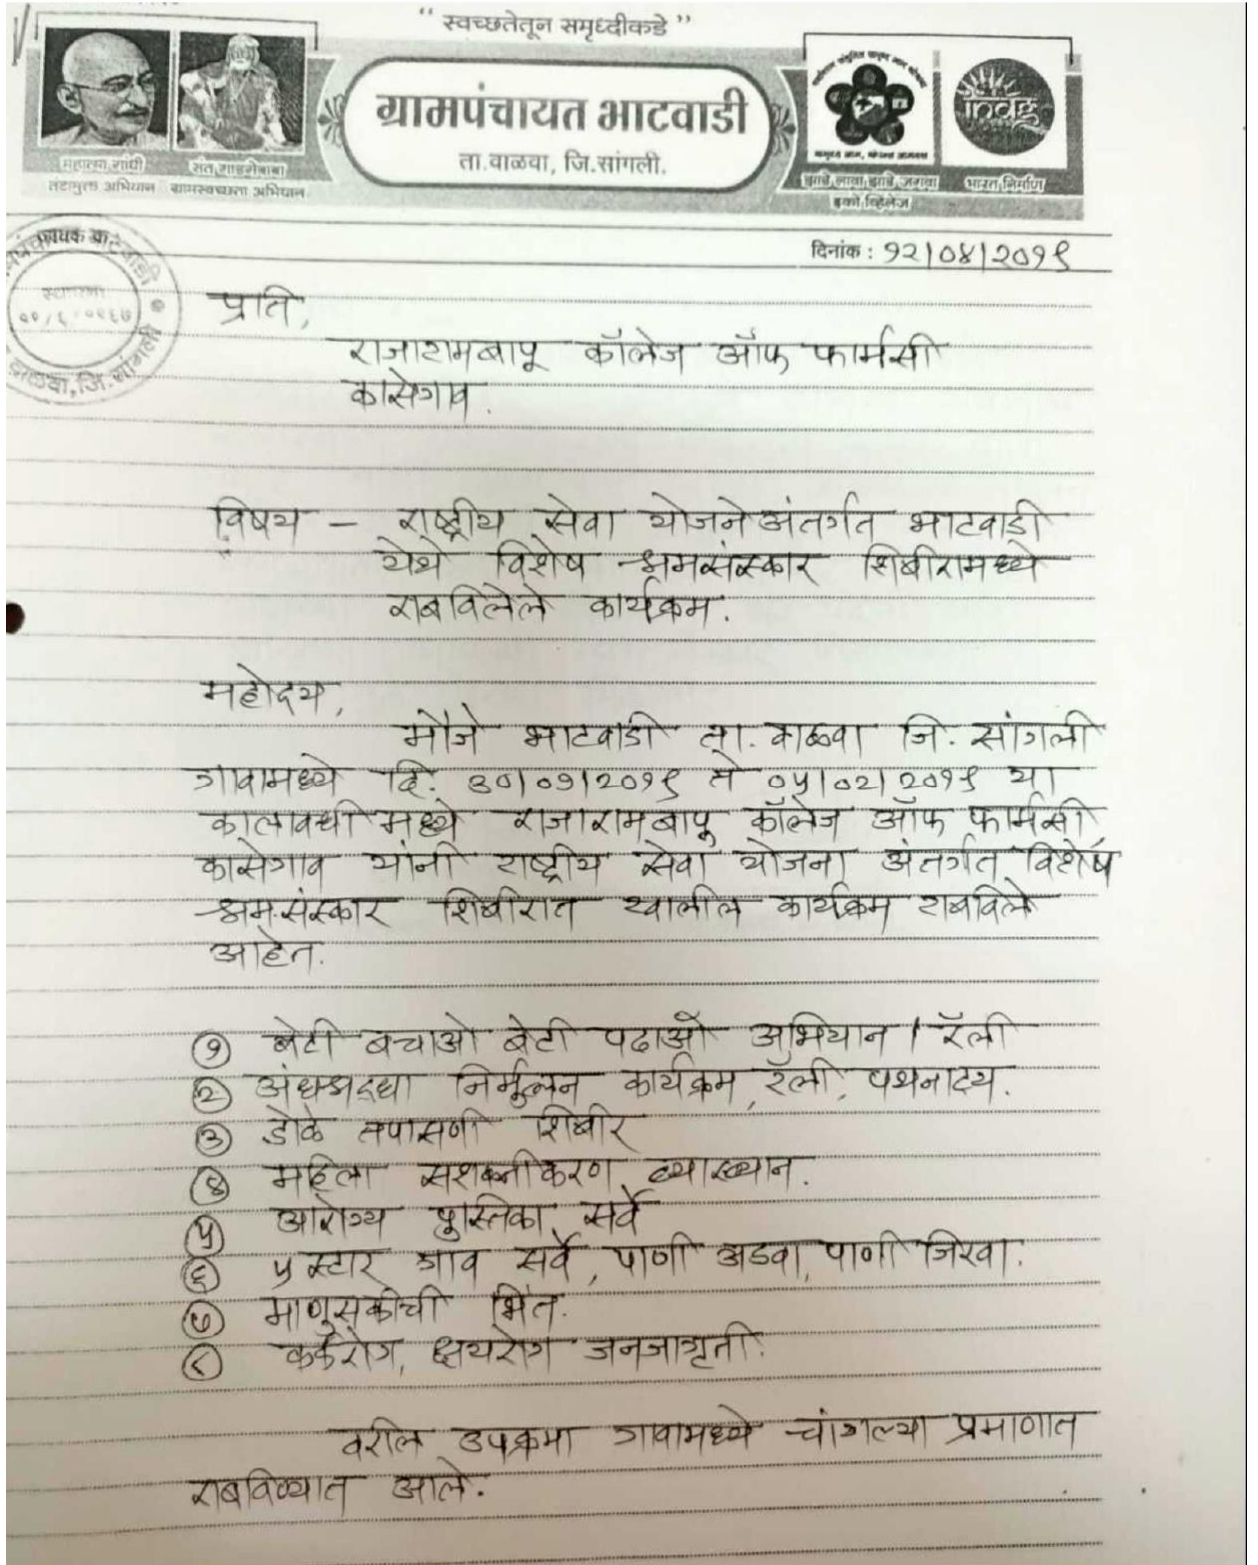 “ स्वच्छतेतून समृध्दीकडे ”
ग्रामपंचायत भाटवाडी
ता.वाळवा, जि.सांगली.
महात्मा गांधी
तंटामुक्त अभियान
संत गाडगेबाबा
ग्रामस्वच्छता अभियान
झाडे लावा झाडे जगवा
इको व्हिलेज
भारत निर्माण
दिनांक : १२/०४/२०१९
प्रति,
राजारामबापू कॉलेज ऑफ फार्मसी
कासेगाव.
विषय – राष्ट्रीय सेवा योजने अंतर्गत भाटवाडी
येथे विशेष श्रमसंस्कार शिबीरामध्ये
राबविलेले कार्यक्रम.
महोदय,
मौजे भाटवाडी ता. वाळवा जि. सांगली
गावामध्ये दि. ३०/०१/२०१९ ते ०५/०२/२०१९ या
कालावधी मध्ये राजारामबापू कॉलेज ऑफ फार्मसी
कासेगाव यांनी राष्ट्रीय सेवा योजना अंतर्गत विशेष
श्रमसंस्कार शिबीरात खालील कार्यक्रम राबविले
आहेत.
१ बेटी बचाओ बेटी पढाओ अभियान / रॅली
२ अंधश्रध्दा निर्मुलन कार्यक्रम, रॅली, पथनाट्य.
३ डोळे तपासणी शिबीर
४ महिला सशक्तीकरण व्याख्यान.
५ आरोग्य पुस्तिका सर्वे
६ ५ स्टार गाव सर्वे, पाणी अडवा, पाणी जिरवा.
७ माणुसकीची भिंत.
८ कर्करोग, क्षयरोग जनजागृती.
वरील उपक्रमा गावामध्ये चांगल्या प्रमाणात
राबविण्यात आले.